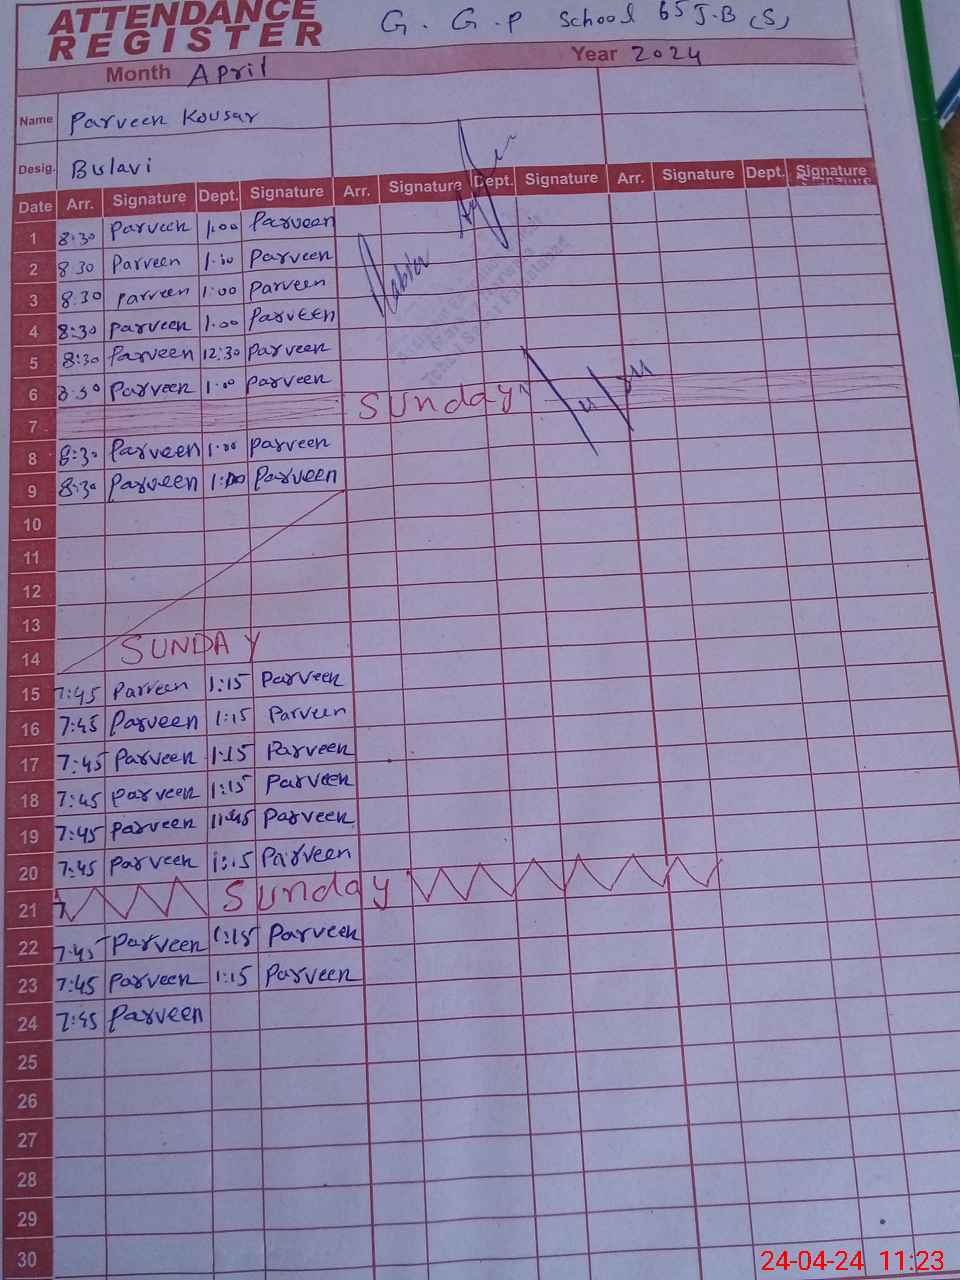 ATTENDANCE REGISTER G.G.P School 65 J.B (S)
Month April Year 2024
Name Parveen Kousar
Desig. Bulavi
Date Arr. Signature Dept. Signature Arr. Signature Dept. Signature Arr. Signature Dept. Signature
1 8:30 Parveen 1:00 Parveen
2 8:30 Parveen 1:00 Parveen
3 8:30 Parveen 1:00 Parveen
4 8:30 Parveen 1:00 Parveen
5 8:30 Parveen 12:30 Parveen
6 8:30 Parveen 1:00 Parveen
7 Sunday
8 8:30 Parveen 1:00 Parveen
9 8:30 Parveen 1:00 Parveen
10
11
12
13
14 SUNDAY
15 7:45 Parveen 1:15 Parveen
16 7:45 Parveen 1:15 Parveen
17 7:45 Parveen 1:15 Parveen
18 7:45 Parveen 1:15 Parveen
19 7:45 Parveen 11:45 Parveen
20 7:45 Parveen 1:15 Parveen
21 7 Sunday
22 7:45 Parveen 1:15 Parveen
23 7:45 Parveen 1:15 Parveen
24 7:45 Parveen
25
26
27
28
29
30
24-04-24 11:23